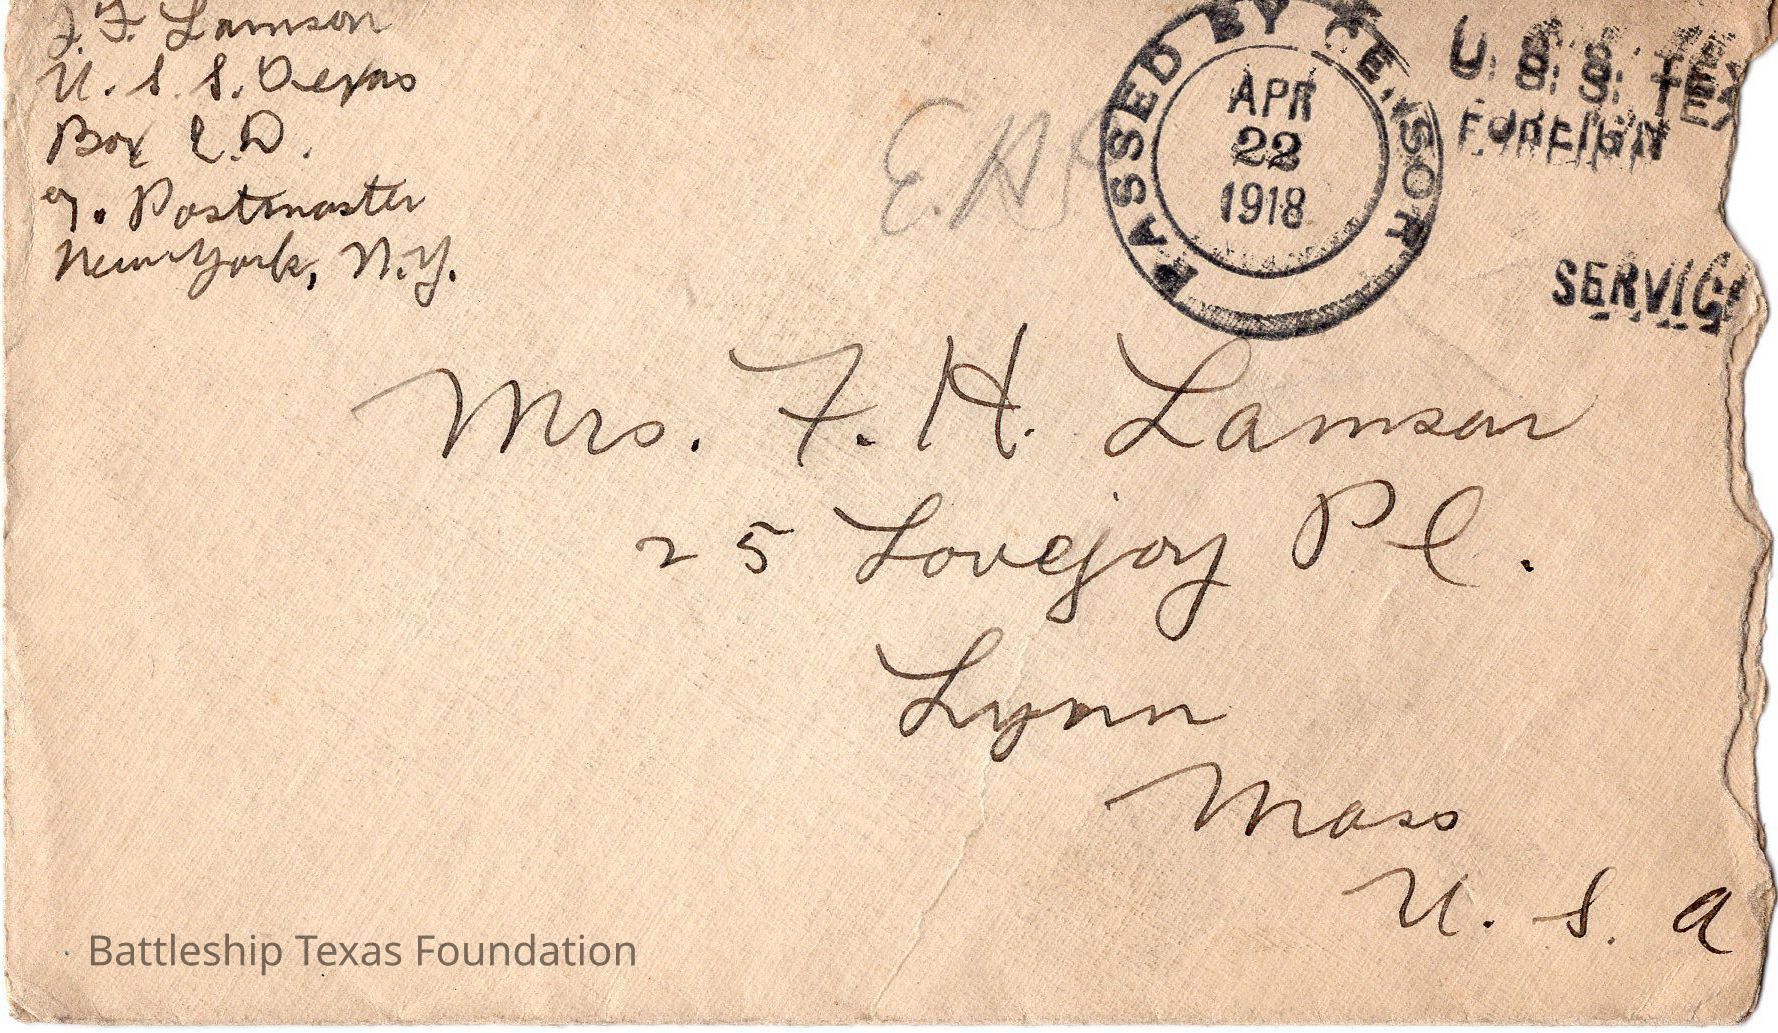 J. F. Lamson
U. S. S. Texas
Box E.D.
c/o. Postmaster
New York, N.Y.
PASSED BY CENSOR
APR
22
1918
U. S. S. TEX
FOREIGN
SERVICE
Mrs. F. H. Lamson
25 Lovejoy Pl.
Lynn
Mass
U. S. A
Battleship Texas Foundation